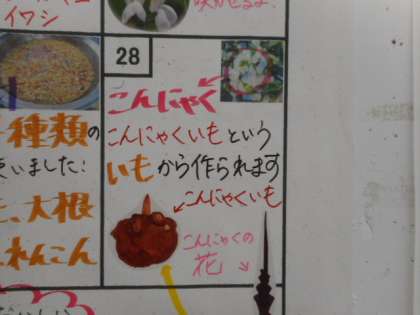 イワシ
28
こんにゃく
こんにゃくいもという
いもから作られます
こんにゃくいも
こんにゃくの
花
種類の
いました!
大根
れんこん